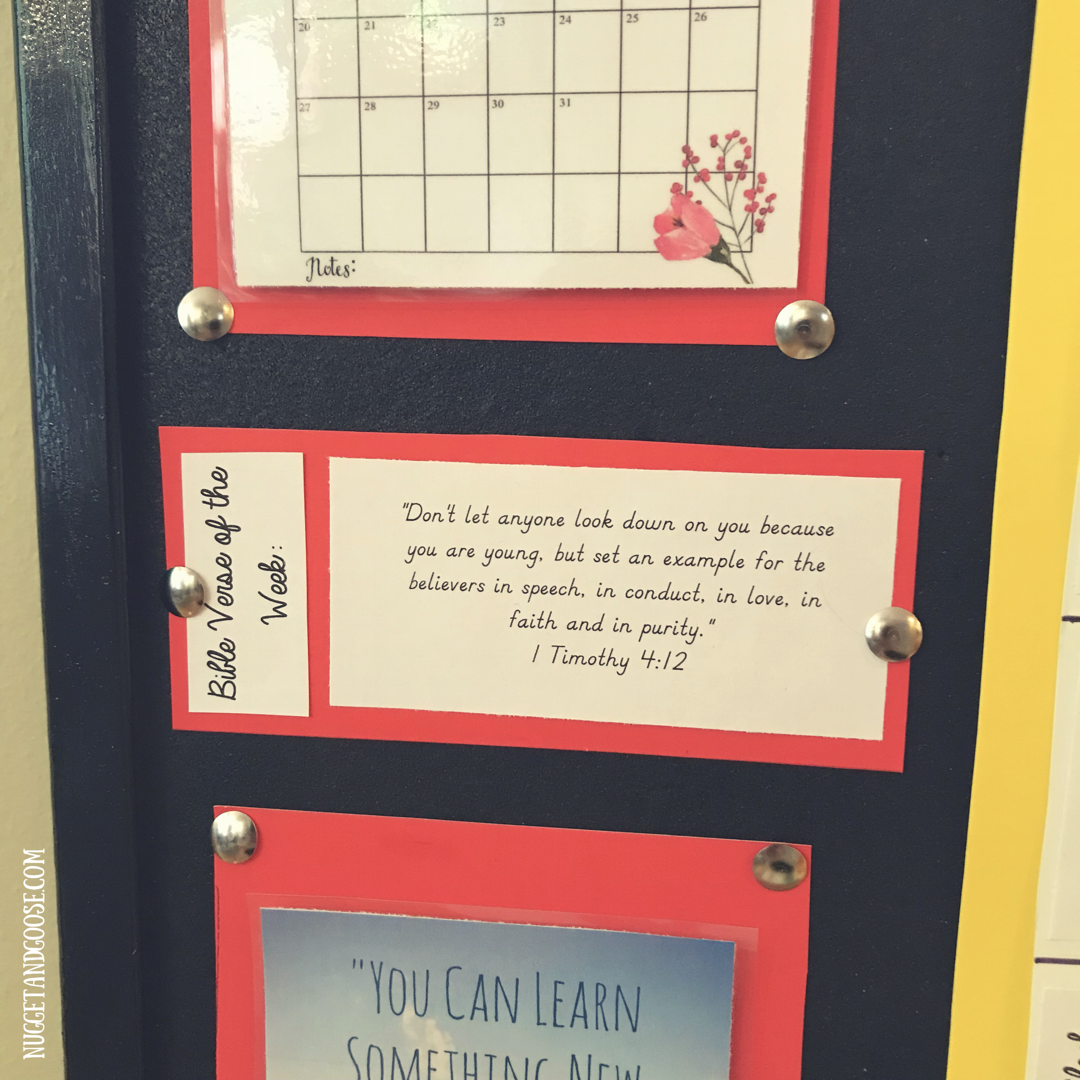 20 21 22 23 24 25 26
27 28 29 30 31
Notes:
Bible Verse of the
Week:
"Don't let anyone look down on you because
you are young, but set an example for the
believers in speech, in conduct, in love, in
faith and in purity."
1 Timothy 4:12
"YOU CAN LEARN
SOMETHING NEW
NUGGETANDGOOSE.COM